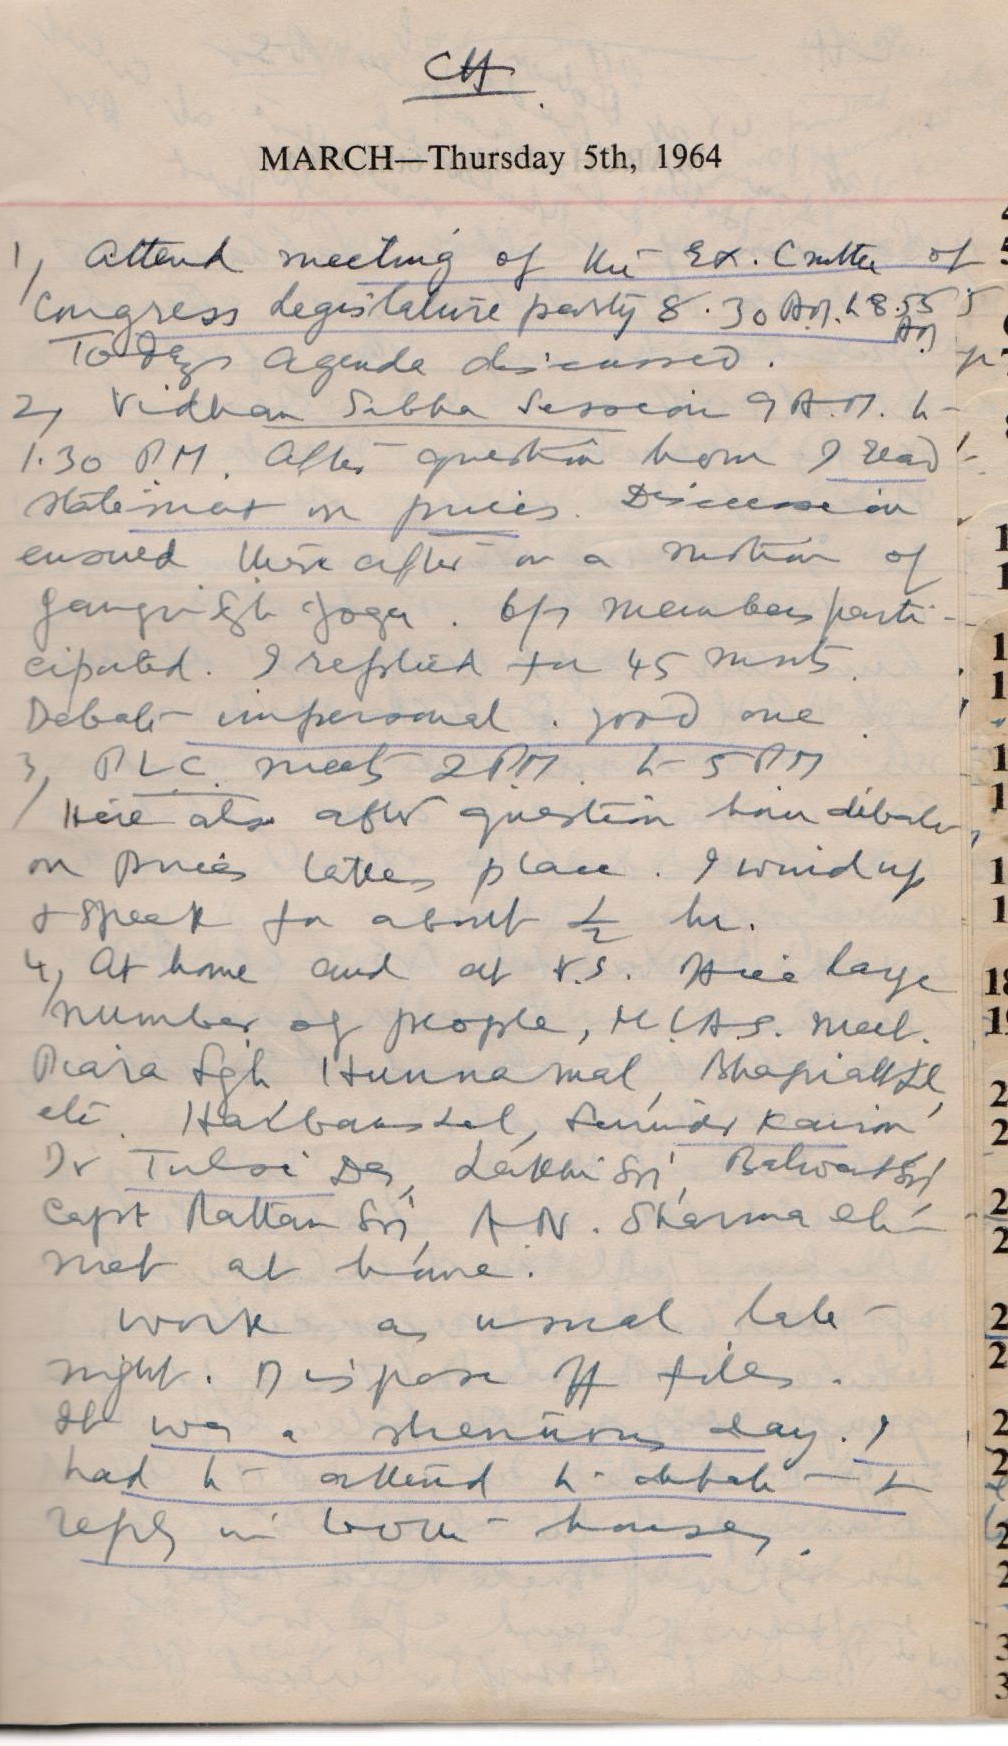 CH
MARCH—Thursday 5th, 1964
1, Attend meeting of the Ex. Cmttee of
Congress Legislature party 8.30 AM. to 8.55 AM
To Days agenda discussed.
2, Vidhan Sabha Session 9 A.M. to
1.30 PM. After question hour I read
statement on prices. Discussion
ensued thereafter on a motion of
Joga. members parti-
cipated. I replied for 45 mnts.
Debate impersonal. good one
3, PLC meets 2 PM. to 5 PM
Here also after question hour debate
on Prices takes place. I wind up
& speak for about ½ hr.
4, At home and at V.S. Here large
number of people, M.L.As. meet.
Piara Sgh Hunnamal,
etc. Harbanslal,
Dr Tulsi Das, Lakhi Sri,
Capt Rattan Sri, A.N. Sharma etc
met at home.
Work as usual late
night. Dispose off files.
It was a strenuous day. I
had to attend to debate &
reply in both houses.